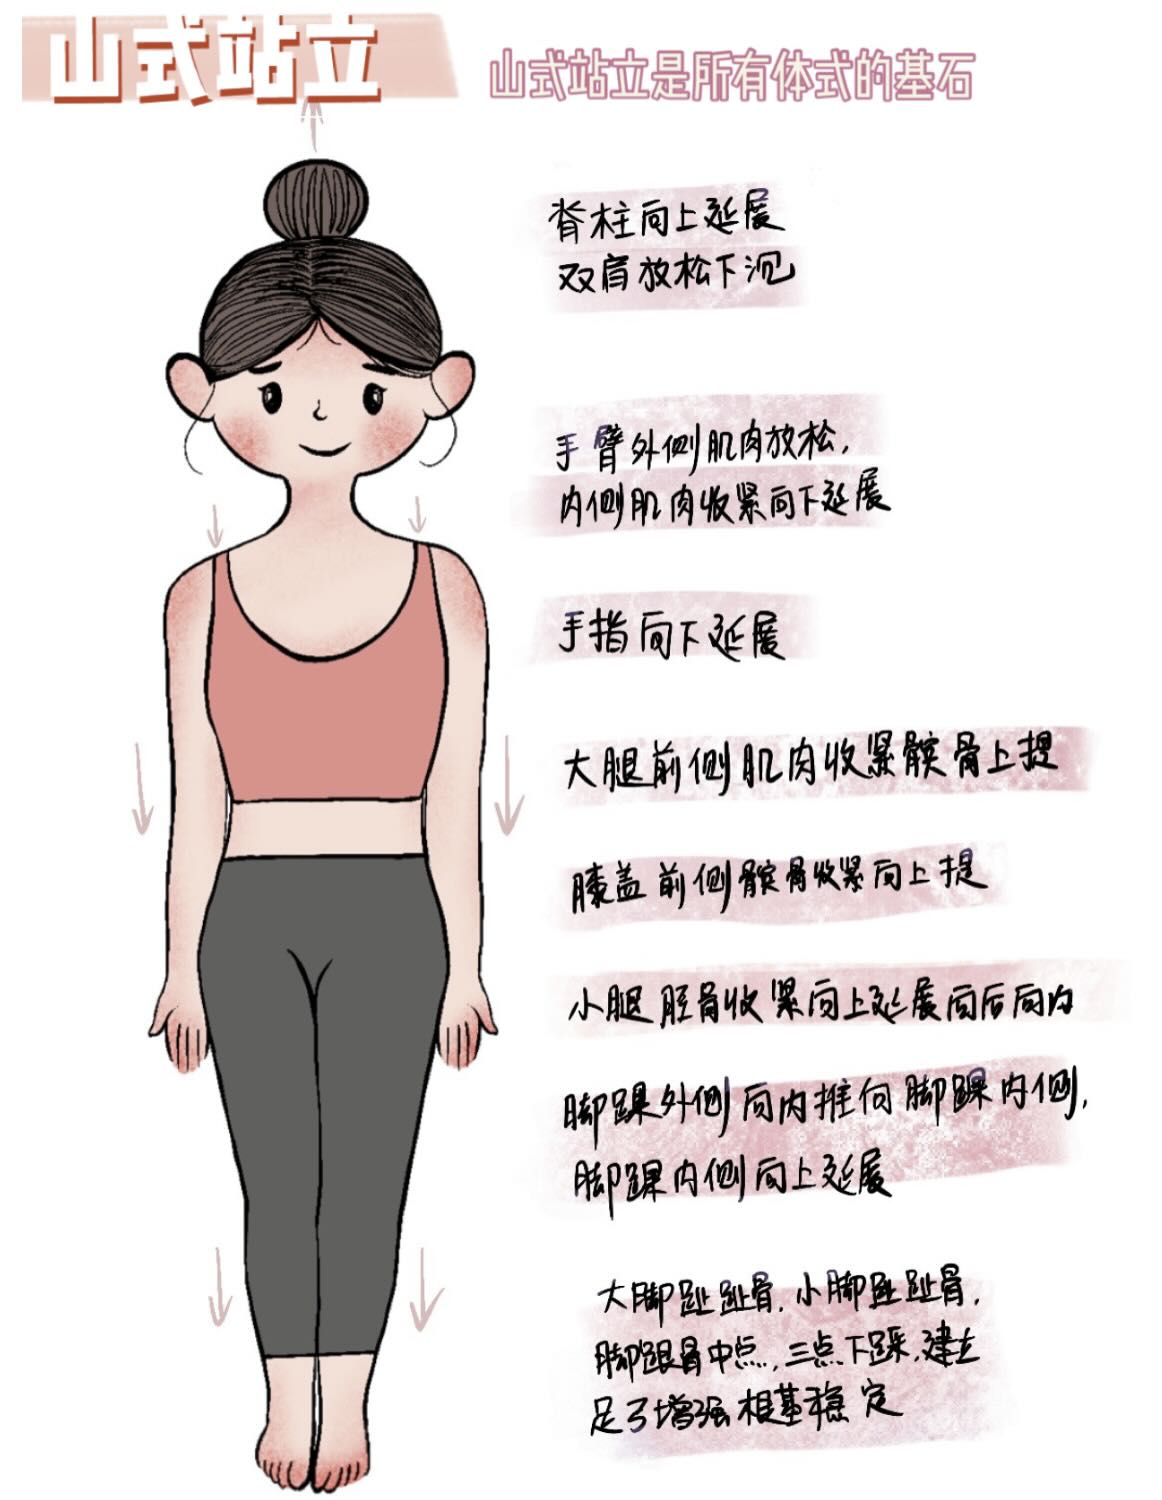 山式站立
山式站立是所有体式的基石
脊柱向上延展
双肩放松下沉
手臂外侧肌肉放松,
内侧肌肉收紧向下延展
手指向下延展
大腿前侧肌肉收紧髌骨上提
膝盖前侧髌骨收紧向上提
小腿胫骨收紧向上延展向后向内
脚踝外侧向内推向脚踝内侧,
脚踝内侧向上延展
大脚趾趾骨,小脚趾趾骨,
脚跟骨中点,三点下踩,建立
足弓增强根基稳定